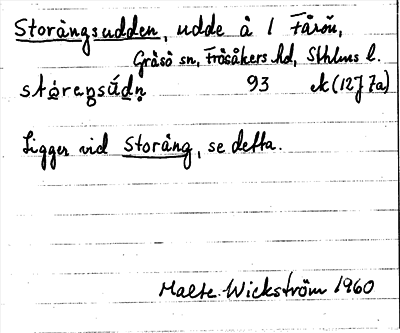 Storängsudden, udde å 1 Fårön,
Gräsö sn, Frösåkers hd, Sthlms l.
93 ek (12J 7a)
Ligger vid Storäng, se detta.
Malte Wickström 1960